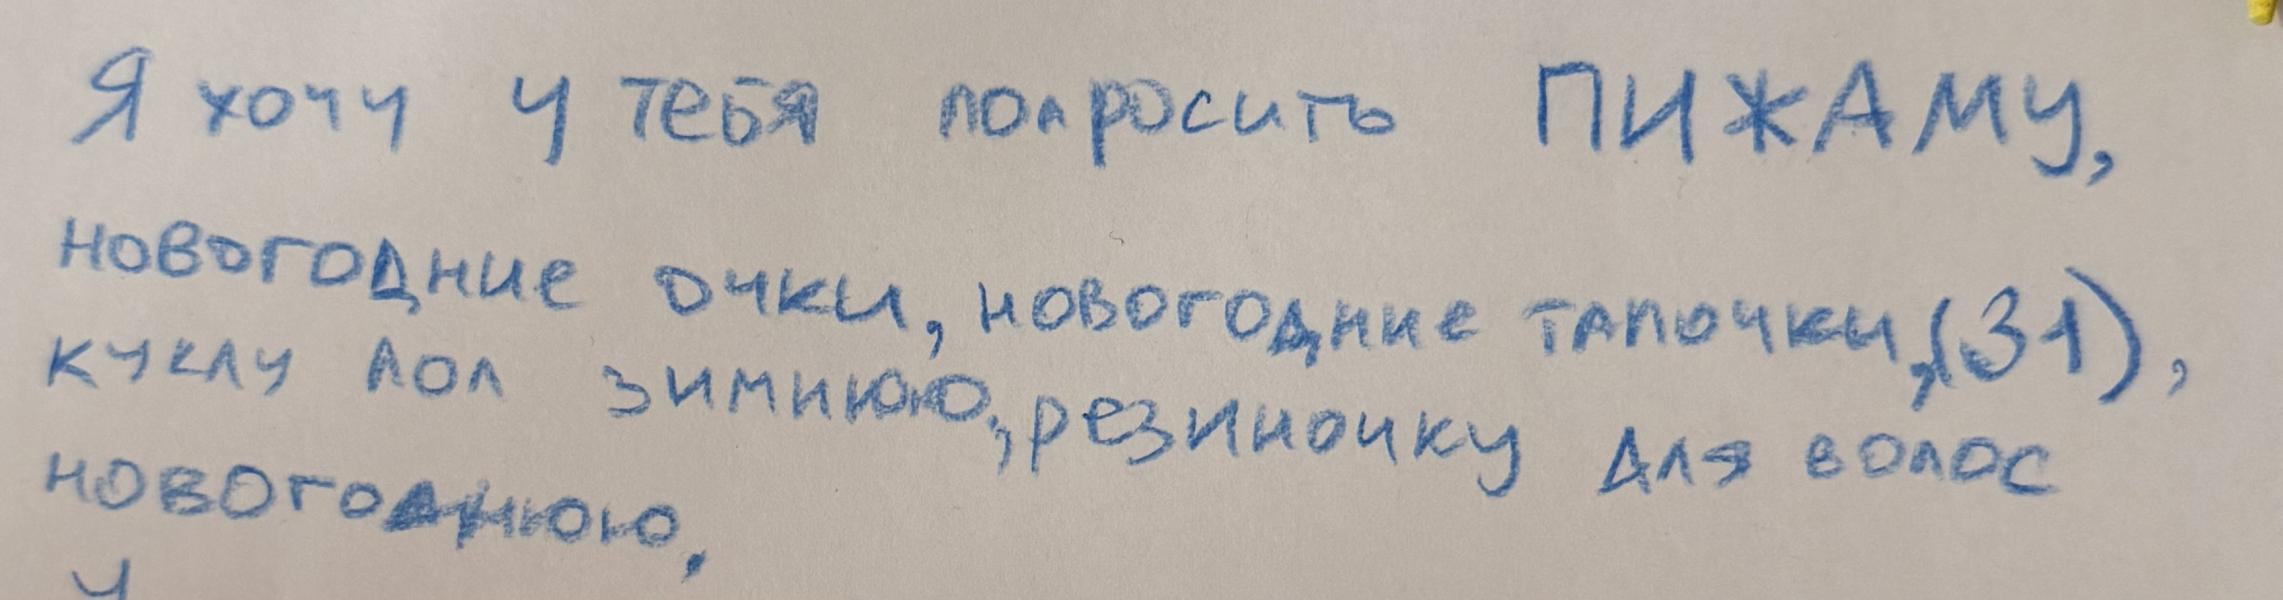 Я хочу у тебя попросить ПИЖАМУ,
новогодние очки, новогодние тапочки,(31),
куклу лол зимнюю,резиночку для волос
новогоднюю.